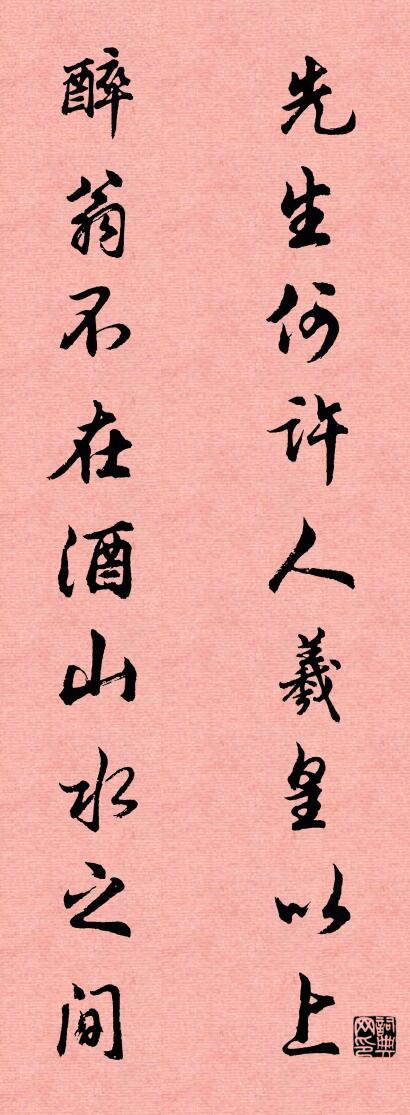 先生何许人羲皇以上
醉翁不在酒山水之间
詞典网印